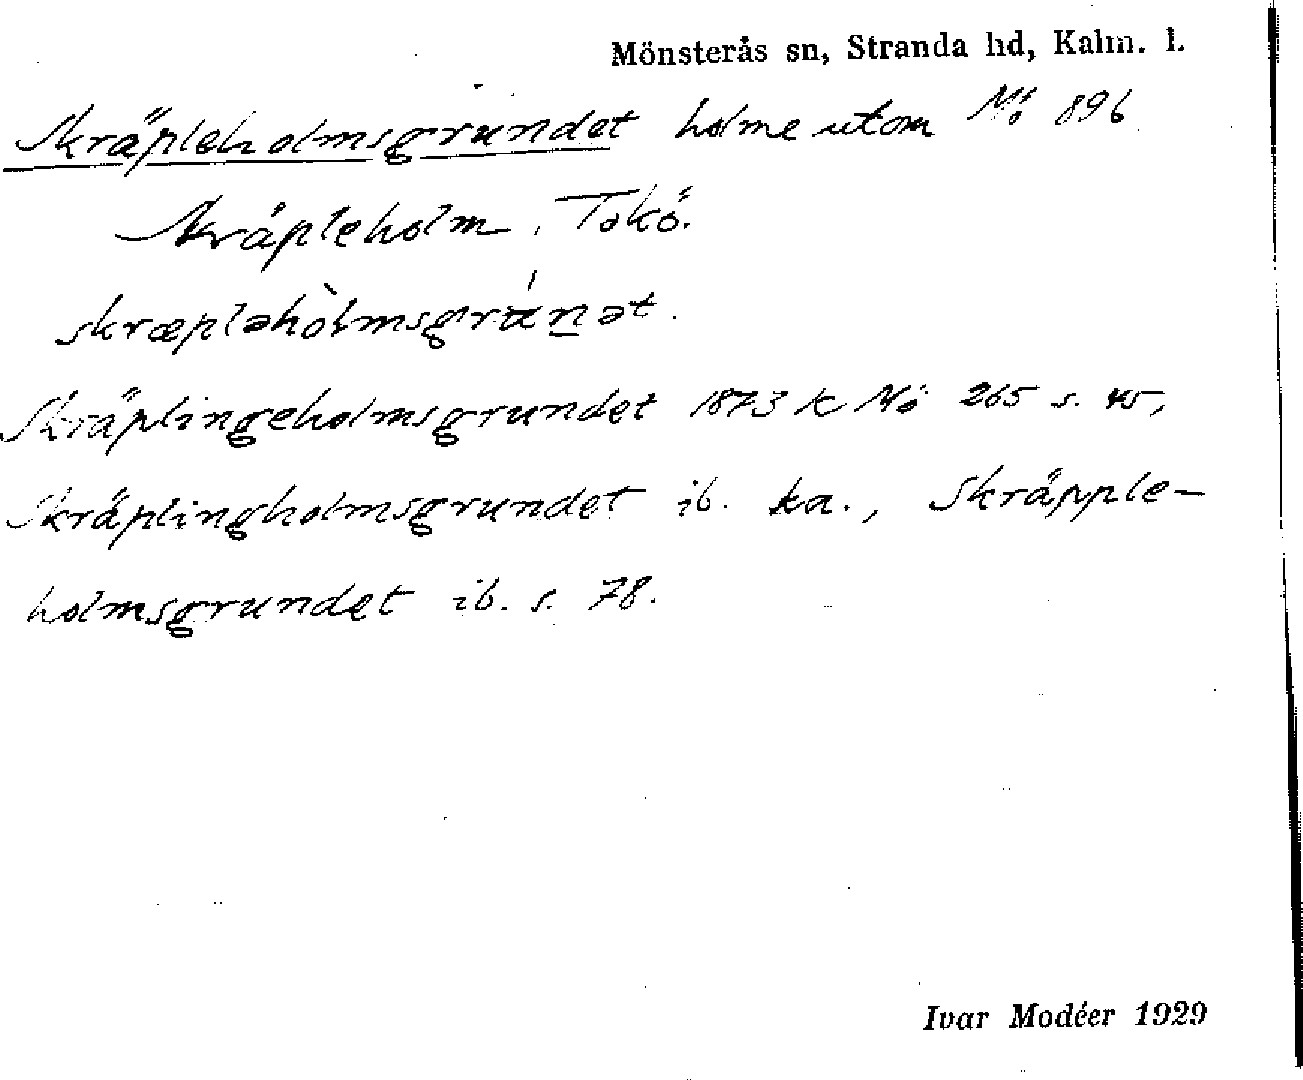 Mönsterås sn, Stranda hd, Kalm. l.
Skräpleholmsgrundet holme utom Mö 896
Skräpleholm, Tokö.
skræpləhòlmsgrúnət.
Skräplingeholmsgrundet 1873 k Mö 265 s. 45,
Skräplingholmsgrundet ib. ka., Skräpple-
holmsgrundet ib. s. 78.
Ivar Modéer 1929